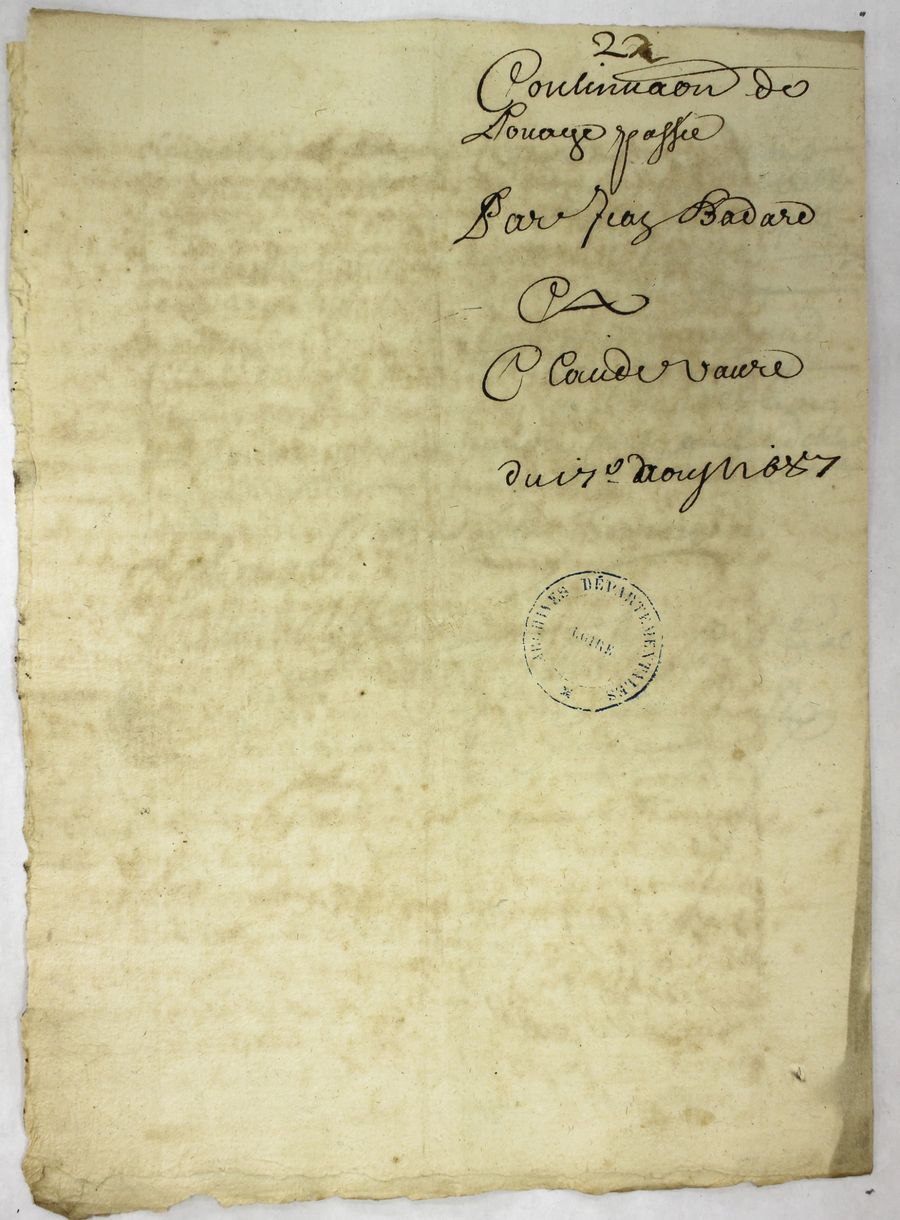 22
Continuaon de
Louage passée
Par Jean Badard
A
Claude vaure
du 17e aoust 1687
ARCHIVES DÉPARTEMENTALES
LOIRE